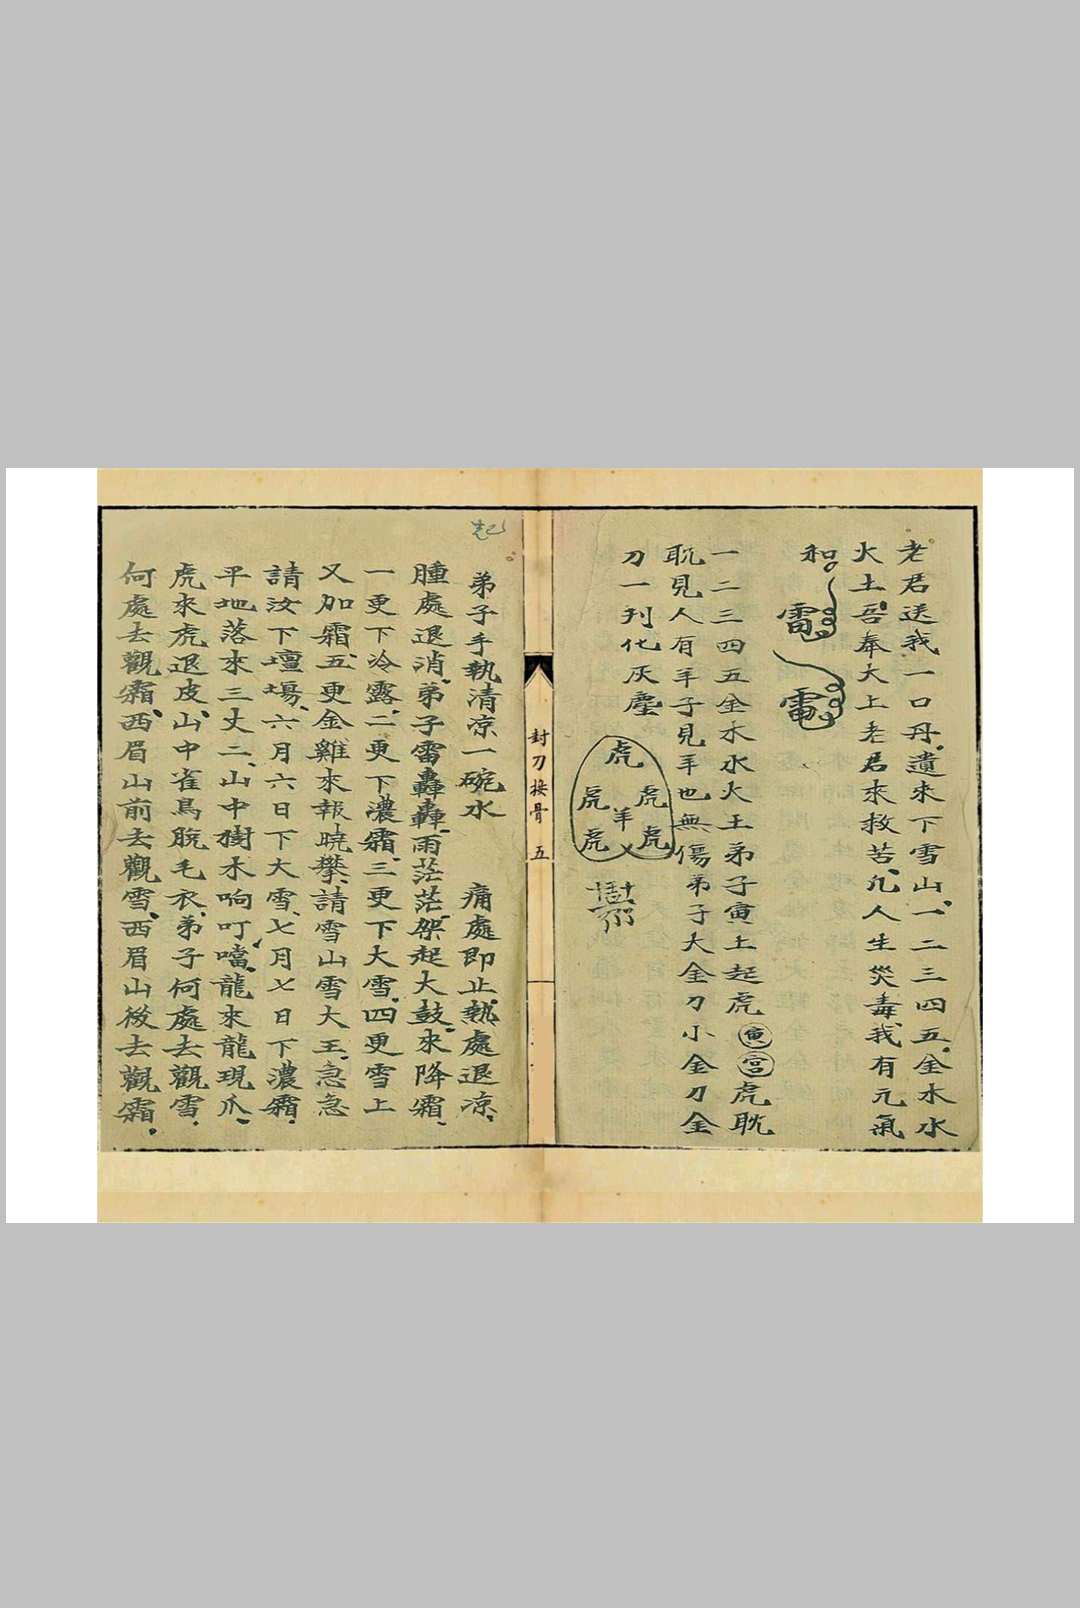 老君送我一口丹遺來下雪山一二三四五金木水
火土吾奉大上老君來救苦凡人生災毒我有元氣
和
雷
電
一二三四五金木水火土弟子寅上起虎寅宮虎耽
耽見人有羊子見羊也無傷弟子大金刀小金刀金
刀一刊化灰塵
虎
虎 虎
羊
虎 虎
封刀接骨 五
起
弟子手執清凉一碗水 痛處即止熱處退凉
腫處退消弟子雷轟轟雨茫茫架起大鼓來降霜
一更下冷露二更下濃霜三更下大雪四更雪上
又加霜五更金雞來報曉攀請雪山雪大王急急
請汝下壇塲六月六日下大雪七月七日下濃霜
平地落來三丈二山中樹木响叮噹龍來龍現爪
虎來虎退皮山中雀鳥脫毛衣弟子何處去觀雪
何處去觀霜西眉山前去觀雪西眉山後去觀霜